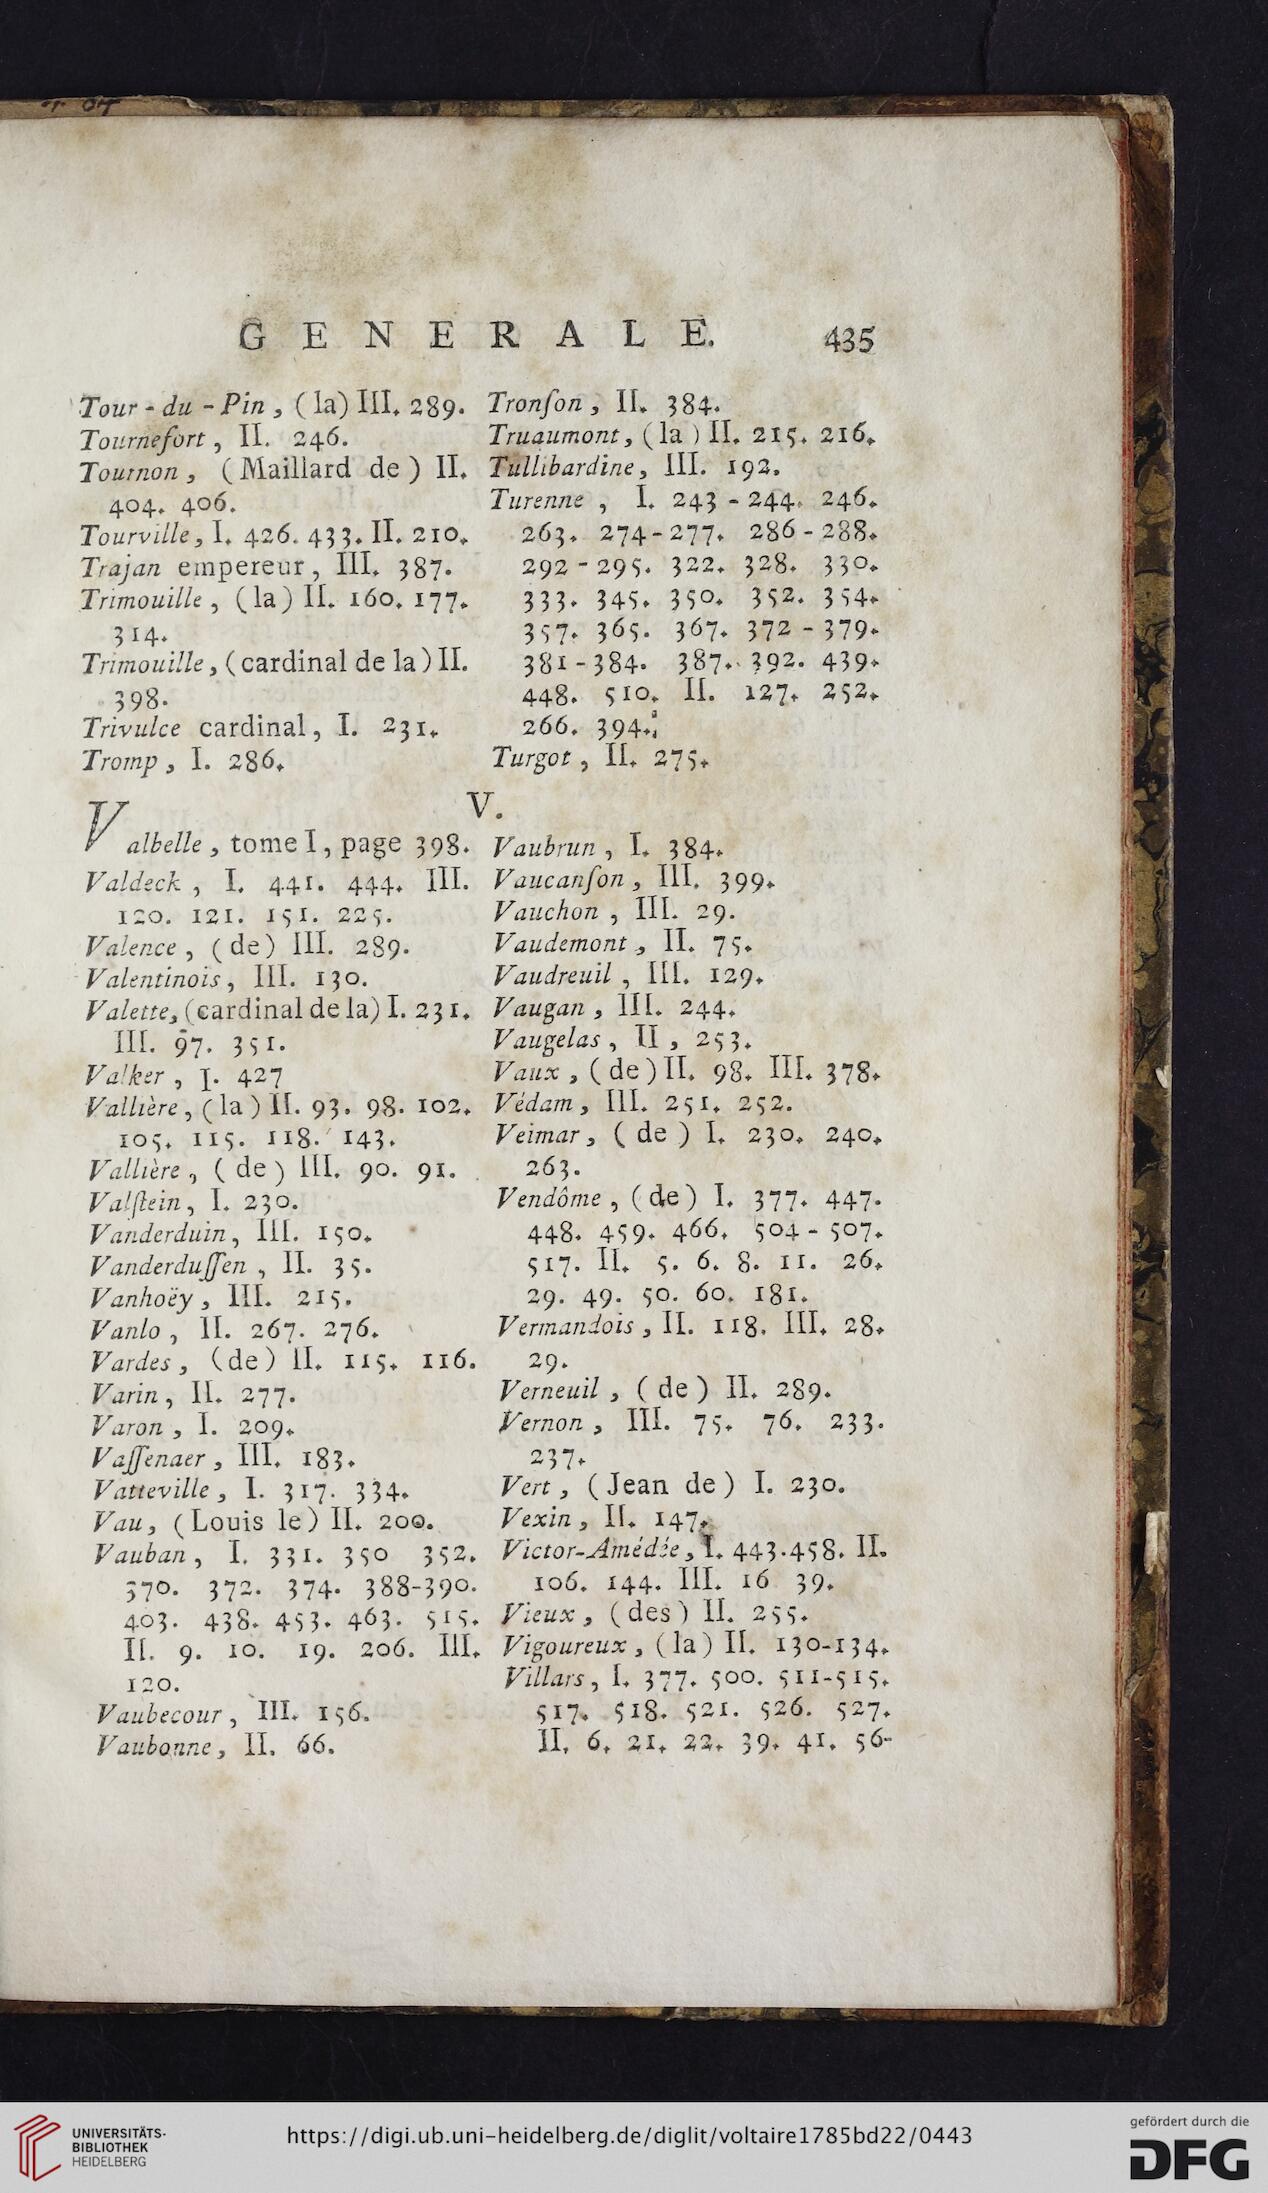 GENERALE. 435
Tour-du-Pin, (la) III. 289.
Tournefort, II. 246.
Tournon, (Maillard de) II.
404. 406.
Tourville, I. 426. 433. II. 210.
Trajan empereur, III. 387.
Trimouille, (la) II. 160. 177.
314.
Trimouille, (cardinal de la) II.
398.
Trivulce cardinal, I. 231.
Tromp, I. 286.
Tronſon, II. 384.
Truaumont, (la) II. 215. 216.
Tullibardine, III. 192.
Turenne, I. 243-244. 246.
263. 274-277. 286-288.
292-295. 322. 328. 330.
333. 345. 350. 352. 354.
357. 365. 367. 372-379.
381-384. 387. 392. 439.
448. 510. II. 127. 252.
266. 394.
Turgot, II. 275.
V.
Valbelle, tome I, page 398.
Valdeck, I. 441. 444. III.
120. 121. 151. 225.
Valence, (de) III. 289.
Valentinois, III. 130.
Valette, (cardinal de la) I. 231.
III. 97. 351.
Valker, I. 427
Vallière, (la) II. 93. 98. 102.
105. 115. 118. 143.
Vallière, (de) III. 90. 91.
Valſtein, I. 230.
Vanderduin, III. 150.
Vanderduſſen, II. 35.
Vanhoëy, III. 215.
Vanlo, II. 267. 276.
Vardes, (de) II. 115. 116.
Varin, II. 277.
Varon, I. 209.
Vaſſenaer, III. 183.
Vatteville, I. 317. 334.
Vau, (Louis le) II. 200.
Vauban, I. 331. 350 352.
370. 372. 374. 388-390.
403. 438. 453. 463. 515.
II. 9. 10. 19. 206. III.
120.
Vaubecour, III. 156.
Vaubonne, II. 66.
Vaubrun, I. 384.
Vaucanſon, III. 399.
Vauchon, III. 29.
Vaudemont, II. 75.
Vaudreuil, III. 129.
Vaugan, III. 244.
Vaugelas, II, 253.
Vaux, (de) II. 98. III. 378.
Védam, III. 251. 252.
Veimar, (de) I. 230. 240.
263.
Vendôme, (de) I. 377. 447.
448. 459. 466. 504-507.
517. II. 5. 6. 8. 11. 26.
29. 49. 50. 60. 181.
Vermandois, II. 118. III. 28.
29.
Verneuil, (de) II. 289.
Vernon, III. 75. 76. 233.
237.
Vert, (Jean de) I. 230.
Vexin, II. 147.
Victor-Amédée, I. 443.458. II.
106. 144. III. 16 39.
Vieux, (des) II. 255.
Vigoureux, (la) II. 130-134.
Villars, I. 377. 500. 511-515.
517. 518. 521. 526. 527.
II. 6. 21. 22. 39. 41. 56-
UNIVERSITÄTS-
BIBLIOTHEK
HEIDELBERG
https://digi.ub.uni-heidelberg.de/diglit/voltaire1785bd22/0443
gefördert durch die
DFG